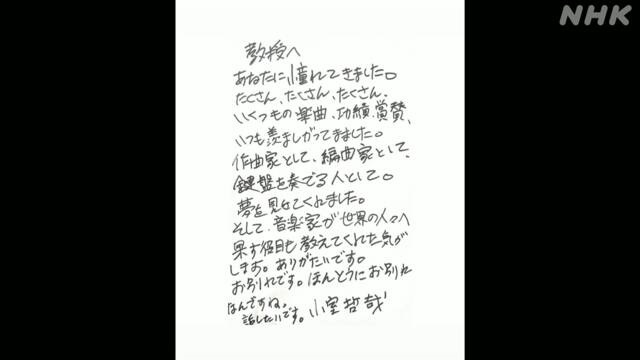 NHK
教授へ
あなたに憧れてきました。
たくさん、たくさん、たくさん、
いくつもの楽曲、功績、賞賛、
いつも羨ましがってました。
作曲家として、編曲家として、
鍵盤を奏でる人として。
夢を見せてくれました。
そして、音楽家が世界の人々へ
果す役目も教えてくれた気が
します。ありがたいです。
お別れです。ほんとうにお別れ
なんですね。
話したいです。小室哲哉